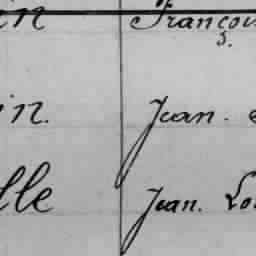 in Françoi
S.
in. Jean.
lle Jean. Lou